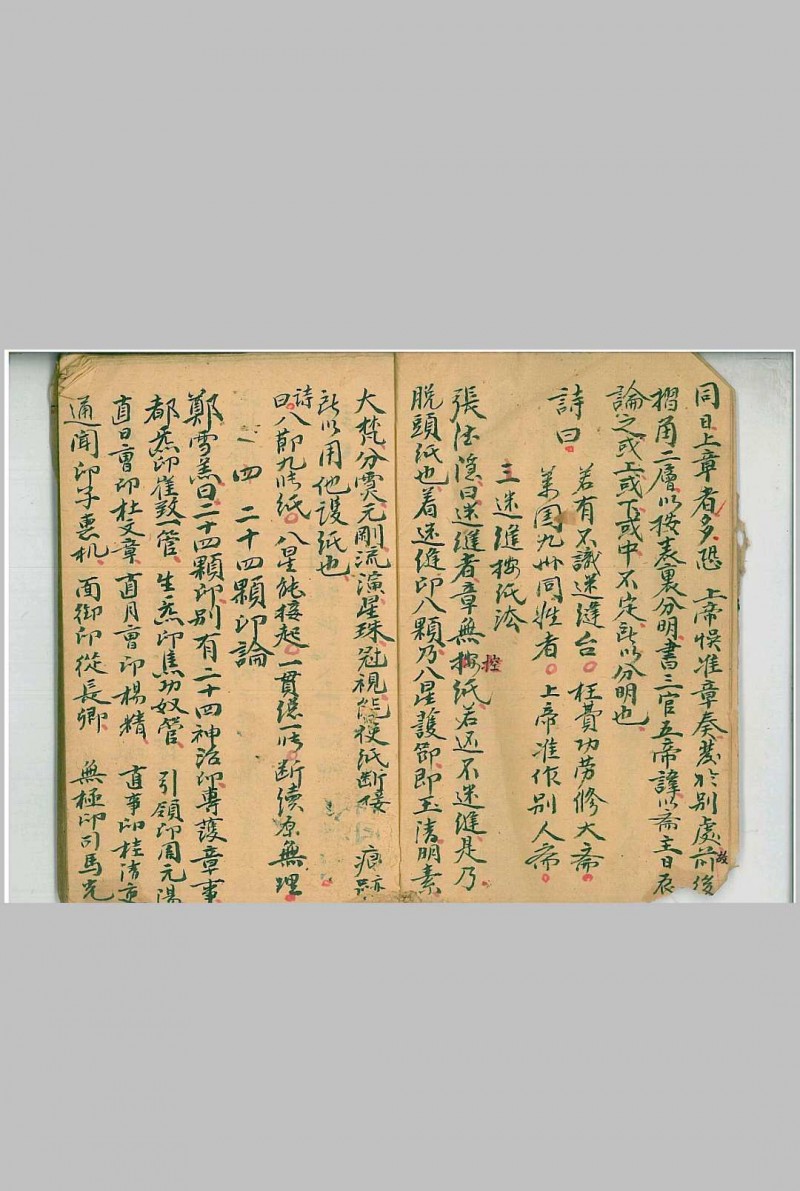 同日上章者多恐 上帝悞准章奏發於別處前後故
摺角二層以按表裏分明書三官五帝諱以斋主日辰
論之或上或下或中不定所以分明也
詩曰 若有不識迷縫台 枉費功劳修大斋
萬国九州同姓者 上帝准作別人斋
三迷縫按紙法
張法隱曰迷縫者章無按紙控若还不迷縫是乃
脫頭紙也着迷縫印八顆乃八星護節即玉清明素
大梵分霄元剛流演星珠冠視能梗紙断接痕跡
所以用他設紙也
詩曰八節九张紙 八星能接起 一貫總一张 断續原無理
四 二十四顆印論
鄭雪羔曰二十四顆印別有二十四神治印專護章事
都炁印崔致一管 生炁印焦功奴管 引領印周元陽
直日曹印杜文章 直月曹印楊精 直事印桂清
通聞印子惠机 面御印從長卿 無極印司馬光